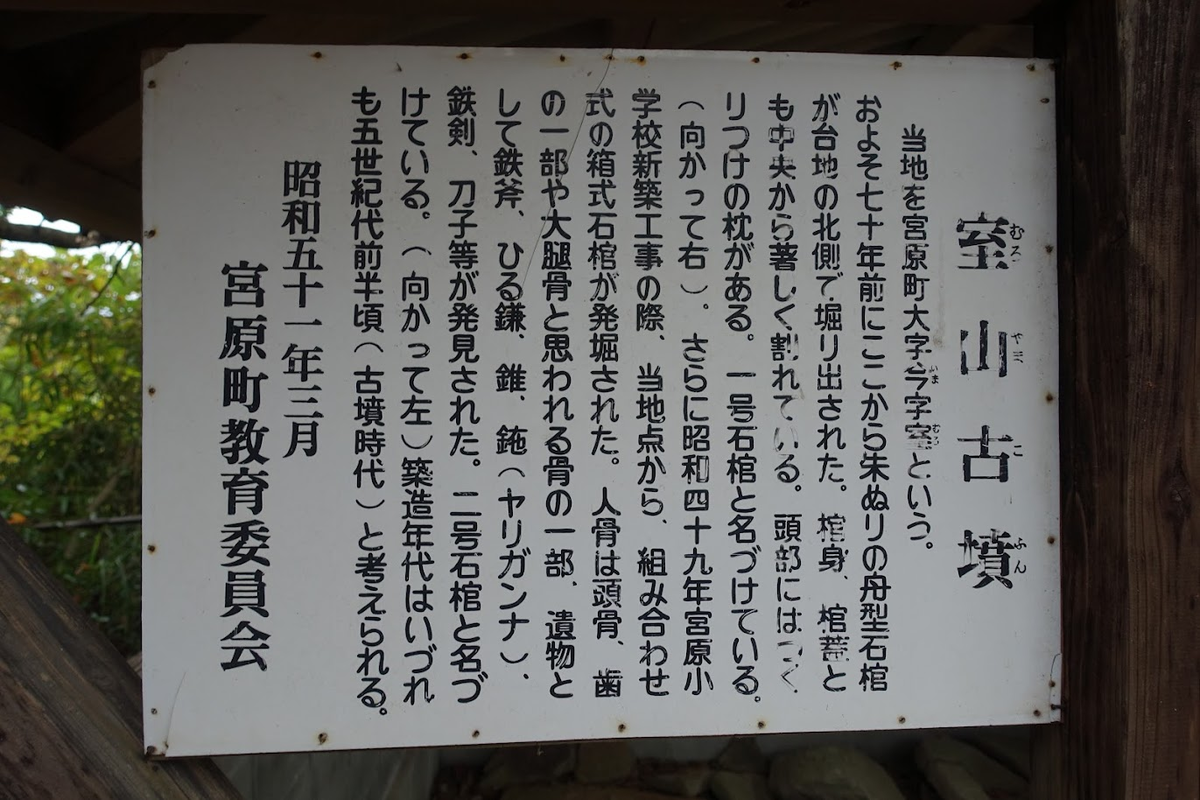 室山古墳
むろ やま こ ふん
当地を宮原町大字今字室という。
いま むろ
およそ七十年前にここから朱ぬりの舟型石棺
が台地の北側で堀り出された。棺身、棺蓋と
も中央から著しく割れている。頭部にはつく
りつけの枕がある。一号石棺と名づけている。
(向かって右)。さらに昭和四十九年宮原小
学校新築工事の際、当地点から、組み合わせ
式の箱式石棺が発堀された。人骨は頭骨、歯
の一部や大腿骨と思われる骨の一部、遺物と
して鉄斧、ひる鎌、錐、鉇(ヤリガンナ)、
鉄剣、刀子等が発見された。二号石棺と名づ
けている。(向かって左)築造年代はいづれ
も五世紀代前半頃(古墳時代)と考えられる。
昭和五十一年三月
宮原町教育委員会